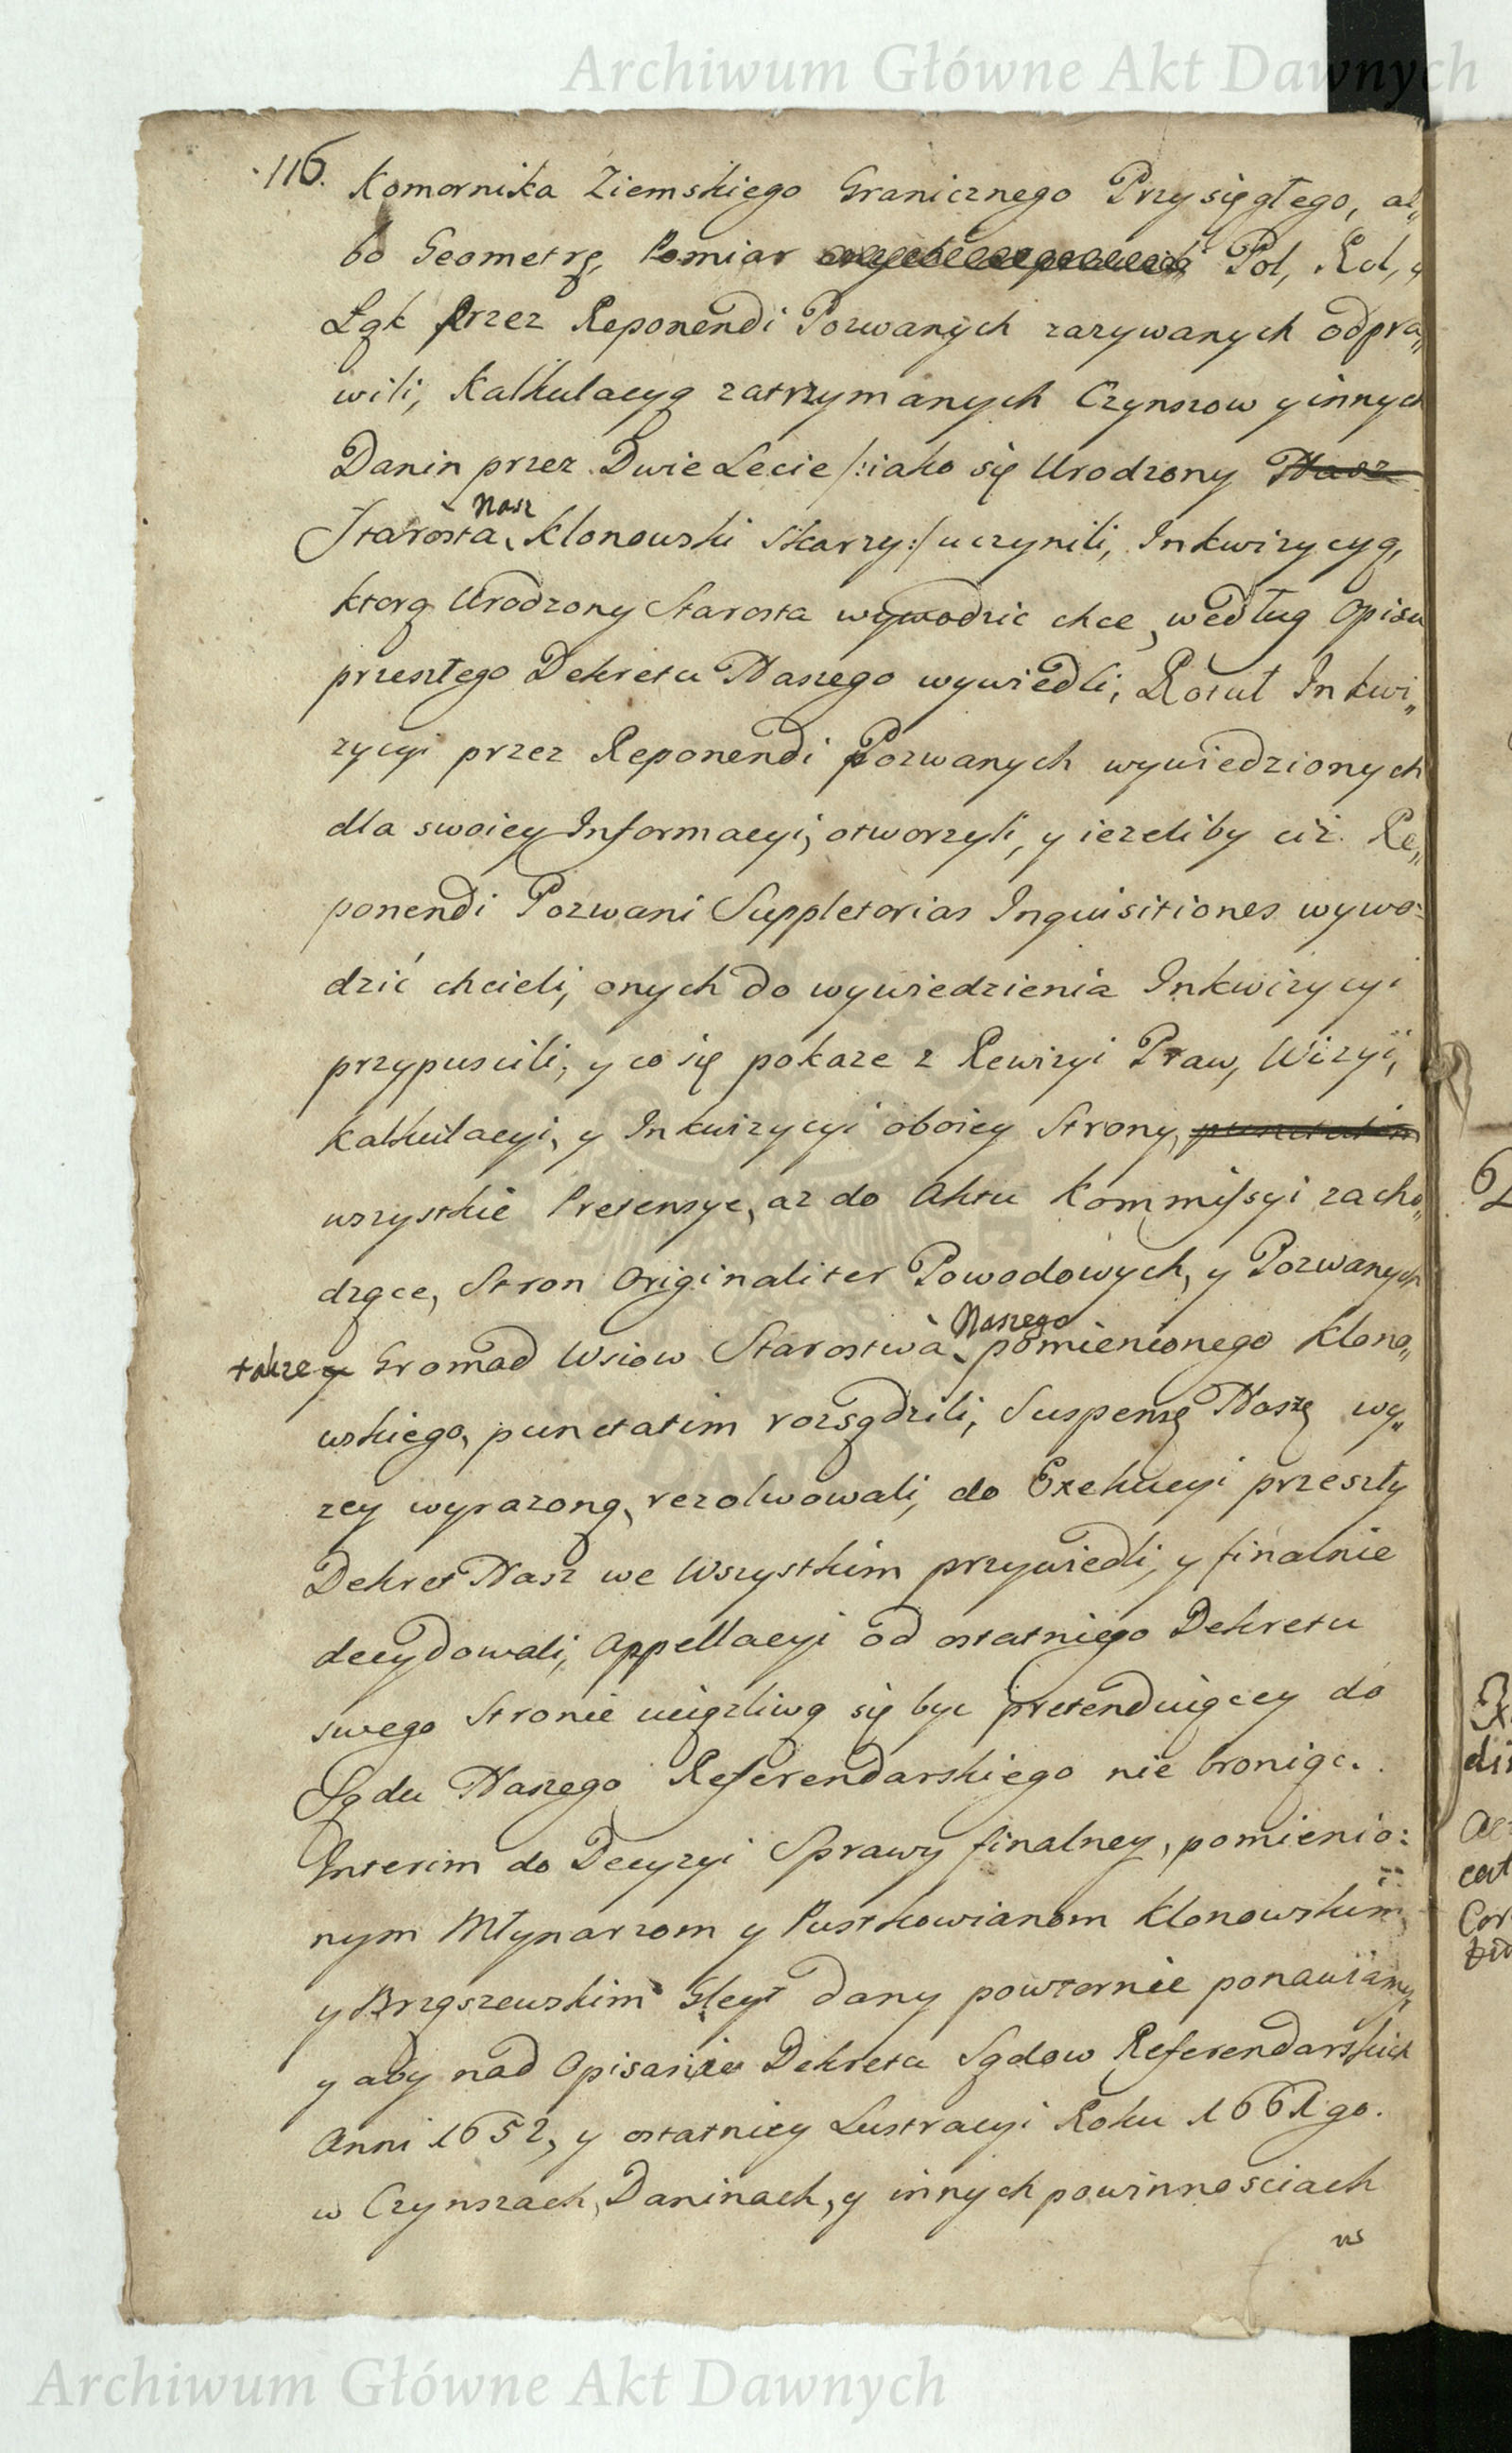 Archiwum Główne Akt Dawnych
116.
Komornika Ziemskiego Granicznego Przysięgłego, al„
bo Geometrę, Pomiar Pol, Rol, y
Łąk przez Reponendi Pozwanych zazywanych odpra„
wili, Kalkulacyą zatrzymanych Czynszow y innych
Danin przez Dwie Lecie /:iako się Urodzony Nasz
Starosta Nasz Klonowski Skarzy:/ uczynili, Inkwizycyą,
ktorą Urodzony Starosta wywodzic chce, według Opisu
przeszłego Dekretu Naszego wywiedli, Rotuł Inkwi„
zycyi przez Reponendi Pozwanych wywiedzionych
dla swoiey Informacyi, otworzyli, y iezeliby ciż Re„
ponendi Pozwani Suppletorias Inquisitiones wywo=
dzić chcieli, onych do wywiedzienia Inkwizycyi
przypuscili, y co się pokaze z Rewizyi Praw, Wizyi,
Kalkulacyi, y Inkwizycyi oboiey Strony, punctatim
wszystkie Pretensye, az do Aktu Kommissyi zacho„
dzące, Stron Originaliter Powodowych, y Pozwanych
takze y Gromad Wsiow Starostwa Naszego pomienionego Klono„
wskiego, punctatim rozsądzili, Suspensę Naszę wy„
zey wyrazoną, rezolwowali, do Exekucyi przeszły
Dekret Nasz we Wszystkim przywiedli, y finalnie
decydowali, Appellacyi od ostatniego Dekretu
swego Stronie uciązliwą się byc pretenduiącey do
Sądu Naszego Referendarskiego nie broniąc.
Interim do Decyzyi Sprawy finalney, pomienio:
nym Młynarzom y Pustkowianom Klonowskim
y Brząszewskim Gleyt dany powtornie ponawiamy,
y aby nad Opisanie Dekretu Sądow Referendarskich
Anni 1652, y ostatniey Lustracyi Roku 1661go.
w Czynszach, Daninach, y innych powinnosciach
us
Archiwum Główne Akt Dawnych